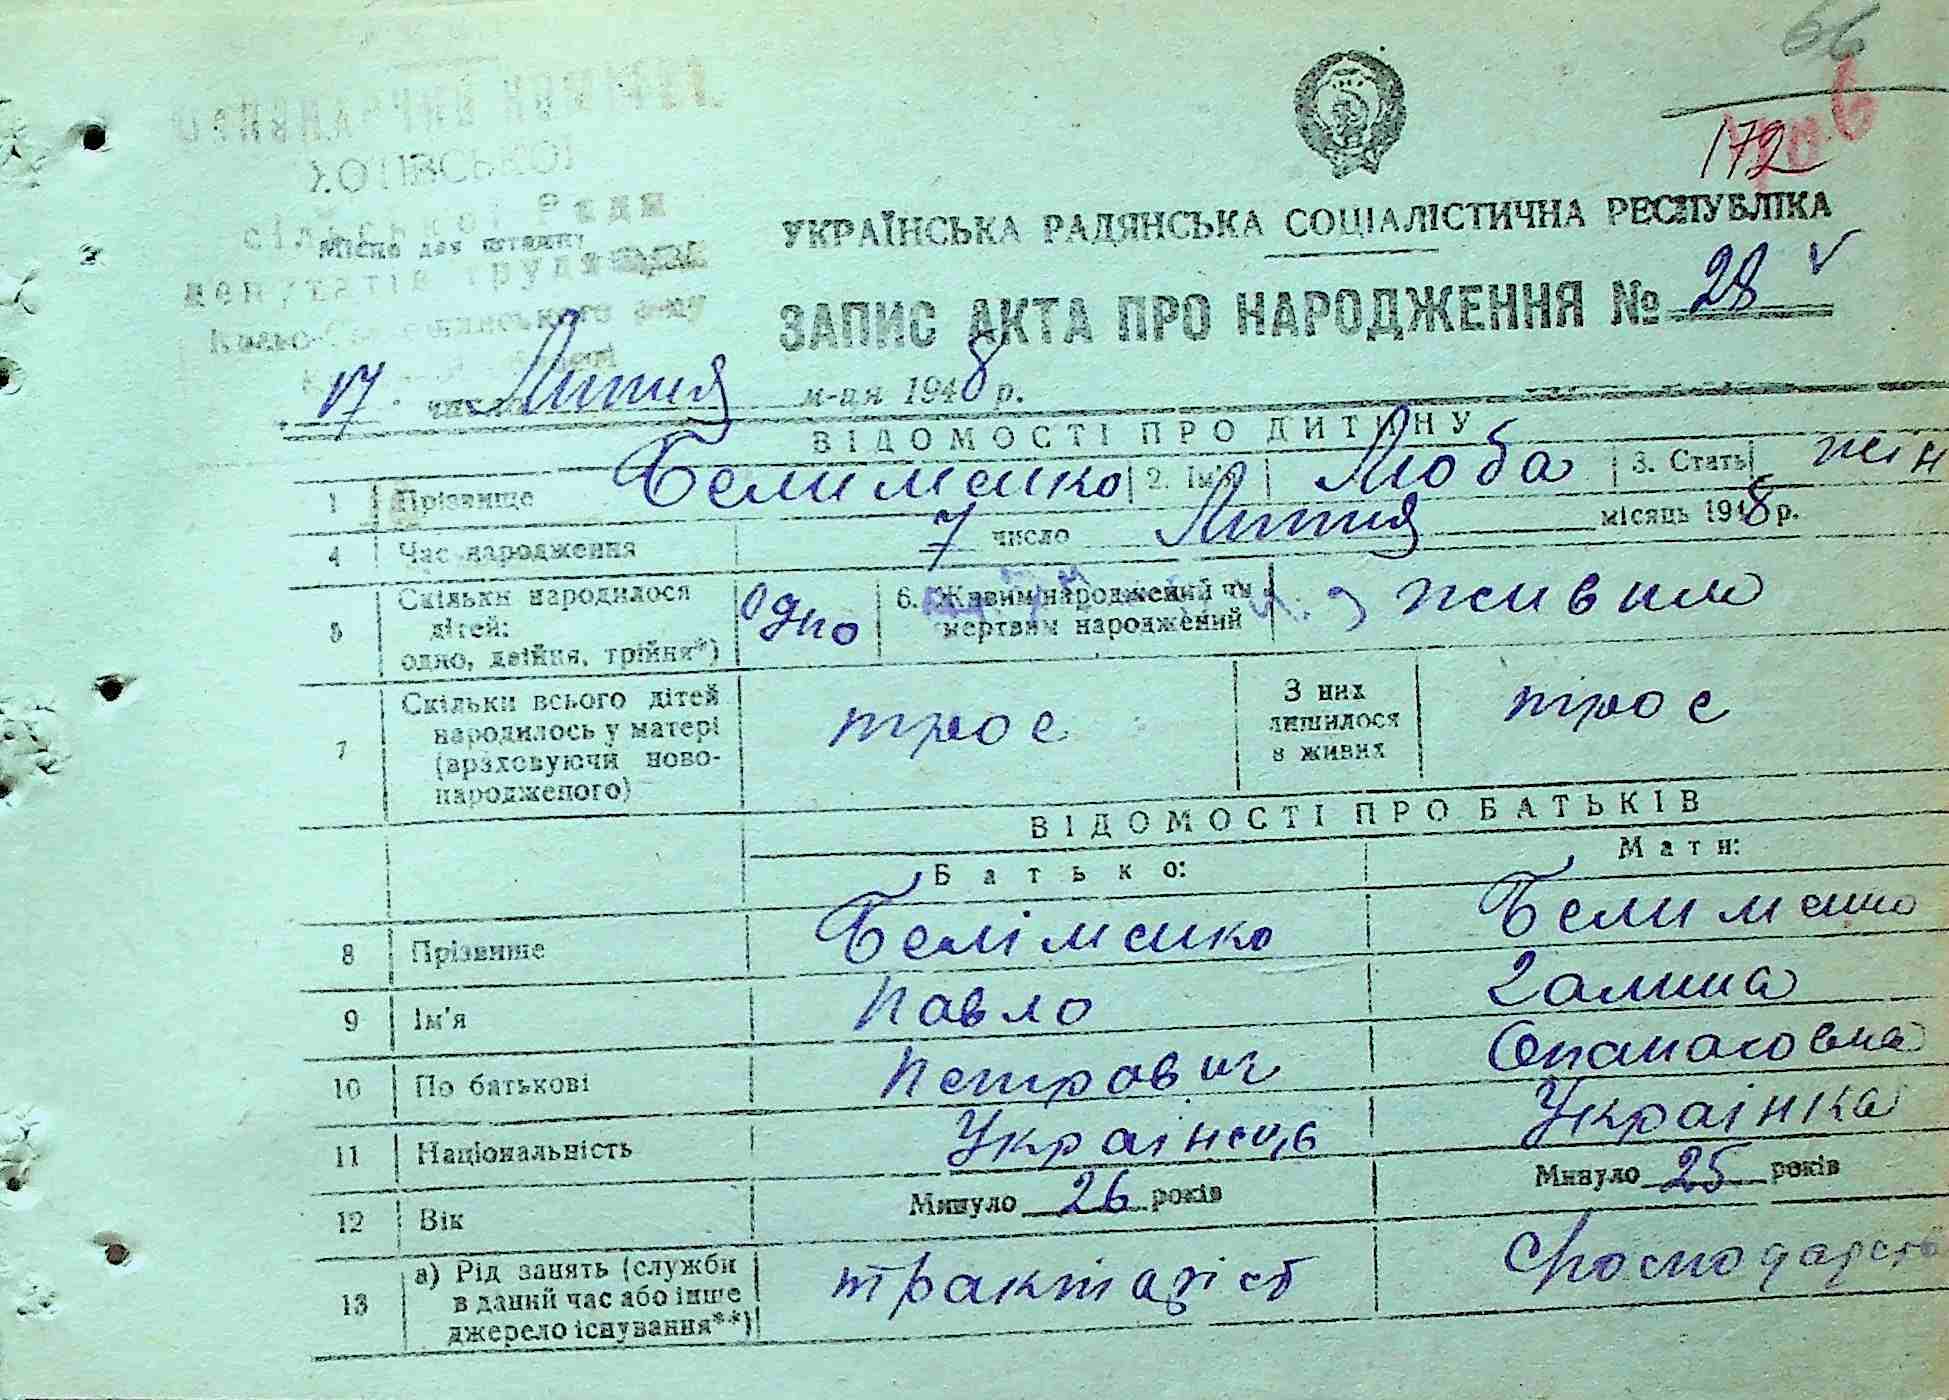 66
172
ХОТІВСЬКОЇ
сільської Ради
Місце для штампу
депутатів трудящих
УКРАЇНСЬКА РАДЯНСЬКА СОЦІАЛІСТИЧНА РЕСПУБЛІКА
ЗАПИС АКТА ПРО НАРОДЖЕННЯ № 28
17 число Липня м-ця 1948 р.
ВІДОМОСТІ ПРО ДИТИНУ
1 Прізвище Белименко 2. Ім'я Люба 3. Стать жін
4 Час народження 7 число Липня місяць 1948 р.
5 Скільки народилося дітей: одно, двійня, трійня*) Одно 6. Живим народжений чи мертвим народжений живим
7 Скільки всього дітей народилось у матері (враховуючи ново-народженого) троє З них лишилося в живих троє
ВІДОМОСТІ ПРО БАТЬКІВ
Батько: Мати:
8 Прізвище Белименко Белименко
9 Ім'я Павло Галина
10 По батькові Петрович Опанасовна
11 Національність Українець Українка
12 Вік Минуло 26 років Минуло 25 років
13 а) Рід занять (служби в даний час або інше джерело існування**) тракторіст